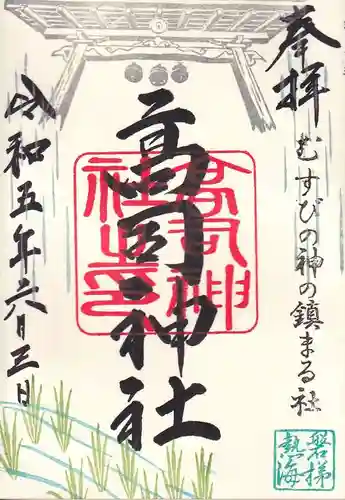 奉拝
むすびの神の鎮まる社
高司神社
高司神社之印
令和五年六月三日
磐梯
熱海